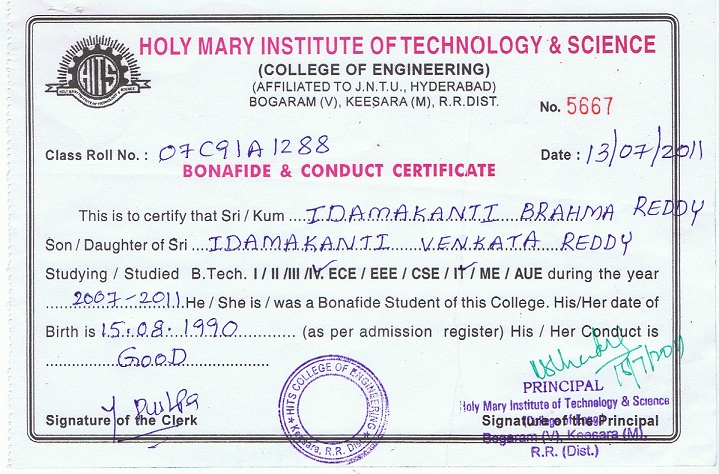 HOLY MARY INSTITUTE OF TECHNOLOGY & SCIENCE
(COLLEGE OF ENGINEERING)
(AFFILIATED TO J.N.T.U., HYDERABAD)
BOGARAM (V), KEESARA (M), R.R.DIST.
HITS
HOLY MARY INSTITUTE OF TECHNOLOGY & SCIENCE
No. 5667
Class Roll No. : 07C91A1288
Date : 13/07/2011
BONAFIDE & CONDUCT CERTIFICATE
This is to certify that Sri / Kum ....IDAMAKANTI BRAHMA REDDY
Son / Daughter of Sri ...IDAMAKANTI VENKATA REDDY
Studying / Studied B.Tech. I / II /III /IV. ECE / EEE / CSE / IT / ME / AUE during the year
2007-2011.He / She is / was a Bonafide Student of this College. His/Her date of
Birth is 15.08.1990 (as per admission register) His / Her Conduct is
GOOD
15/7/2011
PRINCIPAL
Holy Mary Institute of Technology & Science
Signature of the Clerk
Signature of the Principal
(College of Engg.)
Bogaram (V), Keesara (M),
R.R. (Dist.)
HITS COLLEGE OF ENGINEERING
Keesara, R.R. Dist.